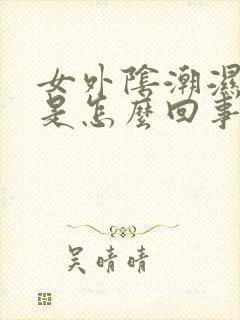 女外陰潮濕
是怎麼回事
吳晴晴